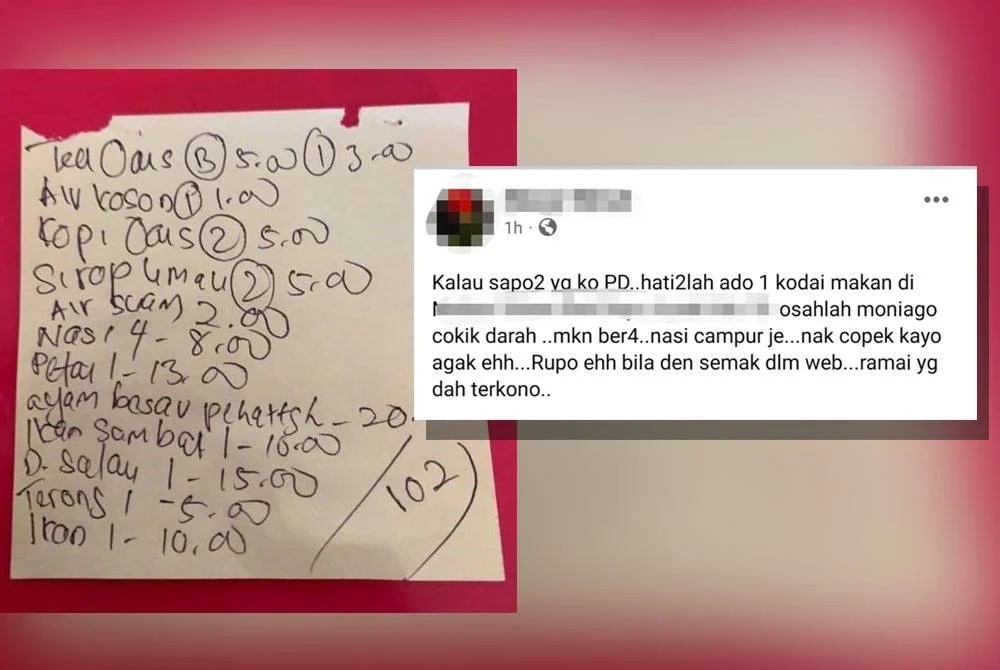 Tea Oais (B) 5.00 (1) 3.00
Air kosong (1) 1.00
Kopi Oais (2) 5.00
Sirop Limau (2) 5.00
Air suam 2.00
Nasi 4 - 8.00
Petai 1 - 13.00
ayam besar - 20.
Ikan Sambal 1 - 16.00
D. Salay 1 - 15.00
Terong 1 - 5.00
Ikan 1 - 10.00
102
1h
Kalau sapo2 yg ko PD..hati2lah ado 1 kodai makan di
osahlah moniago
cokik darah ..mkn ber4..nasi campur je...nak copek kayo
agak ehh...Rupo ehh bila den semak dlm web...ramai yg
dah terkono..